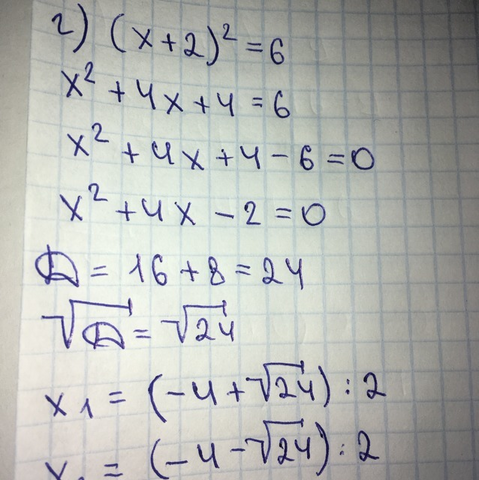 г) (x+2)² = 6
x² + 4x + 4 = 6
x² + 4x + 4 - 6 = 0
x² + 4x - 2 = 0
D = 16 + 8 = 24
√D = √24
x₁ = (-4 + √24) : 2
x₂ = (-4 - √24) : 2